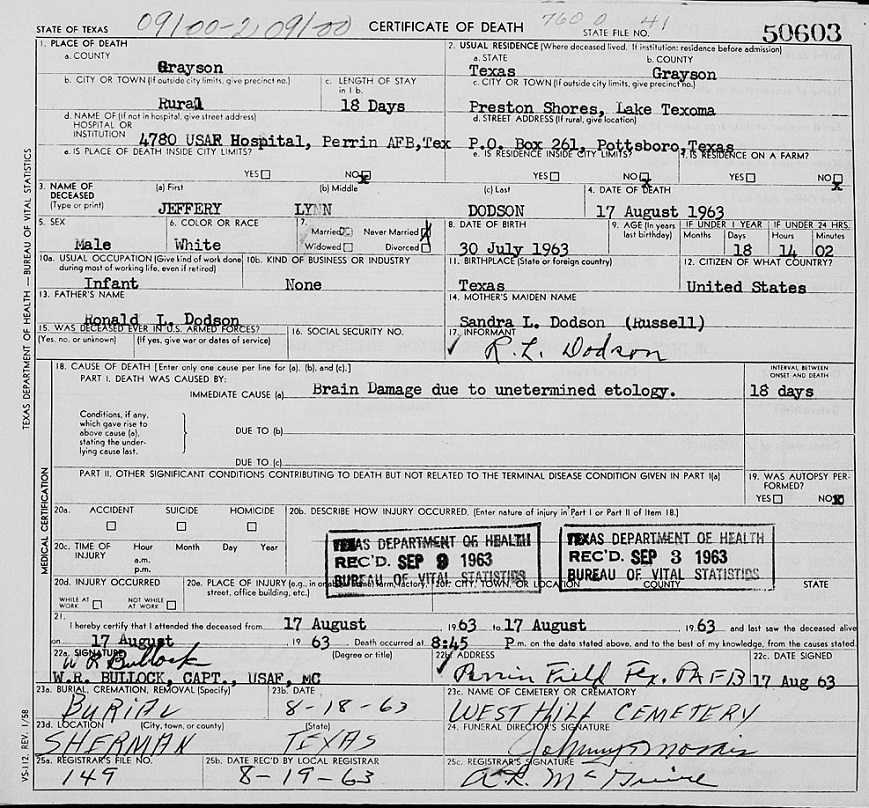 09100-2 09100
760 0 41
STATE OF TEXAS
CERTIFICATE OF DEATH
STATE FILE NO.
50603
1. PLACE OF DEATH
a. COUNTY
Grayson
2. USUAL RESIDENCE (Where deceased lived. If institution: residence before admission)
a. STATE
Texas
b. COUNTY
Grayson
b. CITY OR TOWN (If outside city limits, give precinct no.)
Rural
c. LENGTH OF STAY
in 1 b.
18 Days
c. CITY OR TOWN (If outside city limits, give precinct no.)
Preston Shores, Lake Texoma
d. NAME OF (If not in hospital, give street address)
HOSPITAL OR
INSTITUTION
4780 USAF Hospital, Perrin AFB,Tex
d. STREET ADDRESS (If rural, give location)
P.O. Box 261, Pottsboro,Texas
e. IS PLACE OF DEATH INSIDE CITY LIMITS?
YES NO X
e. IS RESIDENCE INSIDE CITY LIMITS?
YES NO X
f. IS RESIDENCE ON A FARM?
YES NO X
3. NAME OF
DECEASED
(Type or print)
(a) First
JEFFERY
(b) Middle
LYNN
(c) Last
DODSON
4. DATE OF DEATH
17 August 1963
5. SEX
Male
6. COLOR OR RACE
White
7.
Married Never Married X
Widowed Divorced
8. DATE OF BIRTH
30 July 1963
9. AGE (In years
last birthday)
IF UNDER 1 YEAR
Months Days
18
IF UNDER 24 HRS.
Hours Minutes
14 02
10a. USUAL OCCUPATION (Give kind of work done
during most of working life, even if retired)
Infant
10b. KIND OF BUSINESS OR INDUSTRY
None
11. BIRTHPLACE (State or foreign country)
Texas
12. CITIZEN OF WHAT COUNTRY?
United States
13. FATHER'S NAME
Ronald L. Dodson
14. MOTHER'S MAIDEN NAME
Sandra L. Dodson (Russell)
15. WAS DECEASED EVER IN U.S. ARMED FORCES?
(Yes, no, or unknown) (If yes, give war or dates of service)
16. SOCIAL SECURITY NO.
17. INFORMANT
R. L. Dodson
18. CAUSE OF DEATH [Enter only one cause per line for (a), (b), and (c).]
PART I. DEATH WAS CAUSED BY:
IMMEDIATE CAUSE (a)
Brain Damage due to unetermined etology.
INTERVAL BETWEEN
ONSET AND DEATH
18 days
Conditions, if any,
which gave rise to
above cause (a),
stating the under-
lying cause last.
DUE TO (b)
DUE TO (c)
PART II. OTHER SIGNIFICANT CONDITIONS CONTRIBUTING TO DEATH BUT NOT RELATED TO THE TERMINAL DISEASE CONDITION GIVEN IN PART I(a)
19. WAS AUTOPSY PER-
FORMED?
YES NO X
20a. ACCIDENT SUICIDE HOMICIDE
20b. DESCRIBE HOW INJURY OCCURRED. (Enter nature of injury in Part I or Part II of Item 18.)
20c. TIME OF
INJURY
Hour Month Day Year
a.m.
p.m.
TEXAS DEPARTMENT OF HEALTH
REC'D. SEP 9 1963
BUREAU OF VITAL STATISTICS
TEXAS DEPARTMENT OF HEALTH
REC'D. SEP 3 1963
BUREAU OF VITAL STATISTICS
20d. INJURY OCCURRED
WHILE AT
WORK
NOT WHILE
AT WORK
20e. PLACE OF INJURY (e.g., in or about home, farm, factory,
street, office building, etc.)
20f. CITY, TOWN, OR LOCATION COUNTY STATE
21.
I hereby certify that I attended the deceased from 17 August , 1963 to 17 August , 1963 and last saw the deceased alive
on 17 August , 19 63 Death occurred at 8:45 P m. on the date stated above, and to the best of my knowledge, from the causes stated.
22a. SIGNATURE
(Degree or title)
W R Bullock
W.R. BULLOCK, CAPT., USAF, MC
22b. ADDRESS
Perrin Field Tex. PAFB
22c. DATE SIGNED
17 Aug 63
23a. BURIAL, CREMATION, REMOVAL (Specify)
BURIAL
23b. DATE
8-18-63
23c. NAME OF CEMETERY OR CREMATORY
WEST HILL CEMETERY
23d. LOCATION (City, town, or county) (State)
SHERMAN TEXAS
24. FUNERAL DIRECTOR'S SIGNATURE
Johnny Morris
25a. REGISTRAR'S FILE NO.
149
25b. DATE REC'D BY LOCAL REGISTRAR
8-19-63
25c. REGISTRAR'S SIGNATURE
A.R. McGuire
TEXAS DEPARTMENT OF HEALTH — BUREAU OF VITAL STATISTICS
MEDICAL CERTIFICATION
VS-112, REV. 1/58